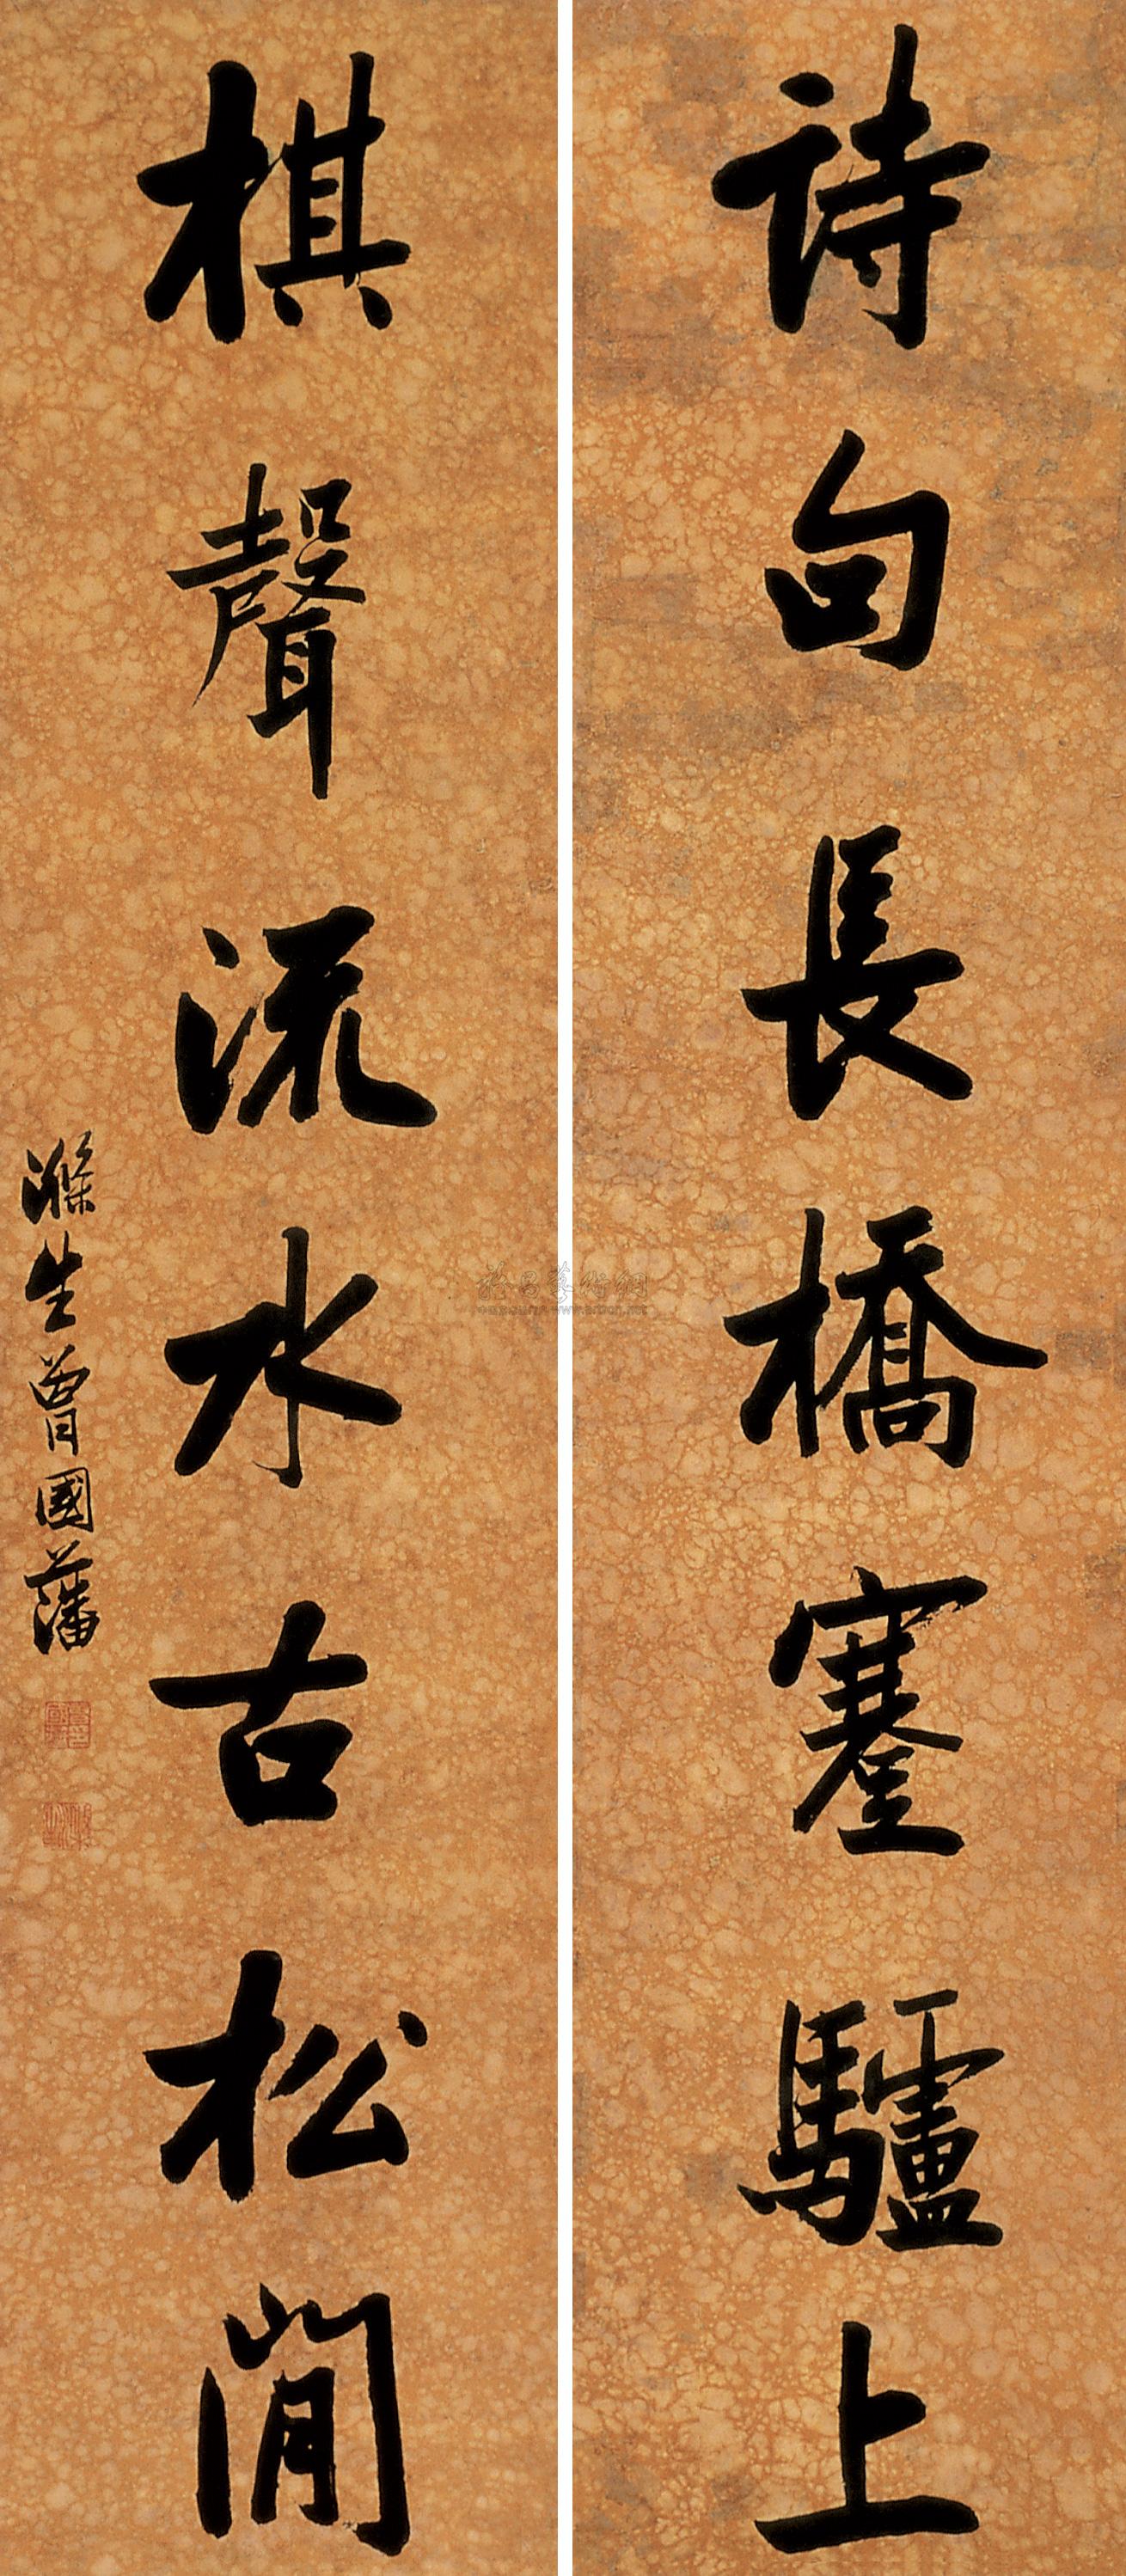 詩句長橋蹇驢上
棋聲流水古松閒
滌生曾國藩